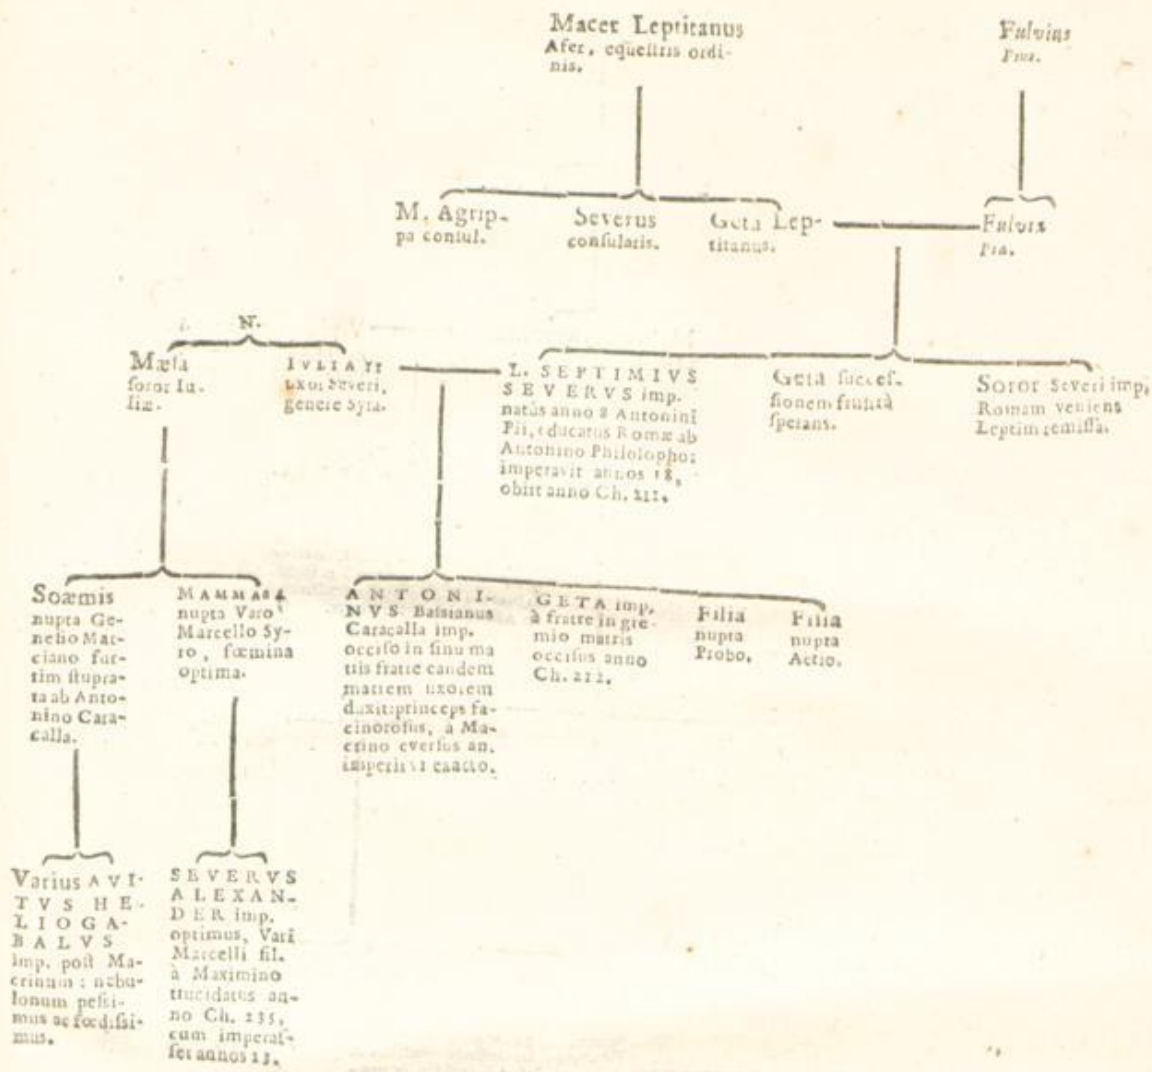 Macer Leptitanus
Afer, equeſtris ordi-
nis.
Fulvius
Pius.
M. Agrip-
pa conſul.
Severus
conſularis.
Geta Lep-
titanus.
Fulvia
Pia.
N.
Mæſa
ſoror Iu-
liæ.
IVLIA
uxor Severi,
genere Syra.
L. SEPTIMIVS
SEVERVS imp.
natus anno 8 Antonini
Pii, educatus Romæ ab
Antonino Philoſopho:
imperavit annos 18,
obiit anno Ch. 211.
Geta ſucceſ-
ſionem fruſtrà
ſperans.
Soror Severi imp.
Romam veniens
Leptim remiſſa.
Soæmis
nupta Ge-
neſio Mar-
ciano fur-
tim ſtupra-
ta ab Anto-
nino Cara-
calla.
MAMMÆA
nupta Varo
Marcello Sy-
ro, fœmina
optima.
ANTONI-
NVS Baſsianus
Caracalla imp.
occiſo in ſinu ma
tris fratre eandem
matrem uxorem
duxit: princeps fa-
cinoroſus, à Ma-
crino everſus an.
imperii VI exacto.
GETA imp.
à fratre in gre-
mio matris
occiſus anno
Ch. 212.
Filia
nupta
Probo.
Filia
nupta
Aetio.
Varius AVI-
TVS HE-
LIOGA-
BALVS
imp. poſt Ma-
crinum: nebu-
lonum peſsi-
mus ac fœdiſsi-
mus.
SEVERVS
ALEXAN-
DER imp.
optimus, Vari
Marcelli fil.
à Maximino
trucidatus an-
no Ch. 235,
cum imperaſ-
ſet annos 13.